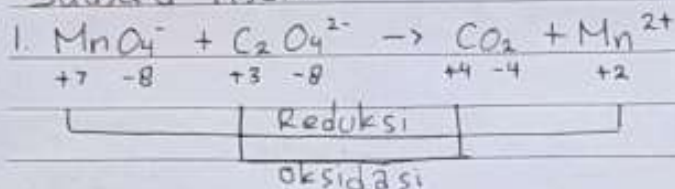 1. MnO₄⁻ + C₂O₄²⁻ → CO₂ + Mn²⁺
+7 -8 +3 -8 +4 -4 +2
Reduksi
oksidasi